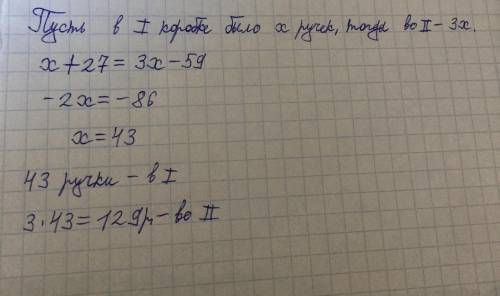 Пусть в I коробке было x ручек, тогда во II - 3x.
x + 27 = 3x - 59
- 2x = - 86
x = 43
43 ручки - в I
3 · 43 = 129 р - во II